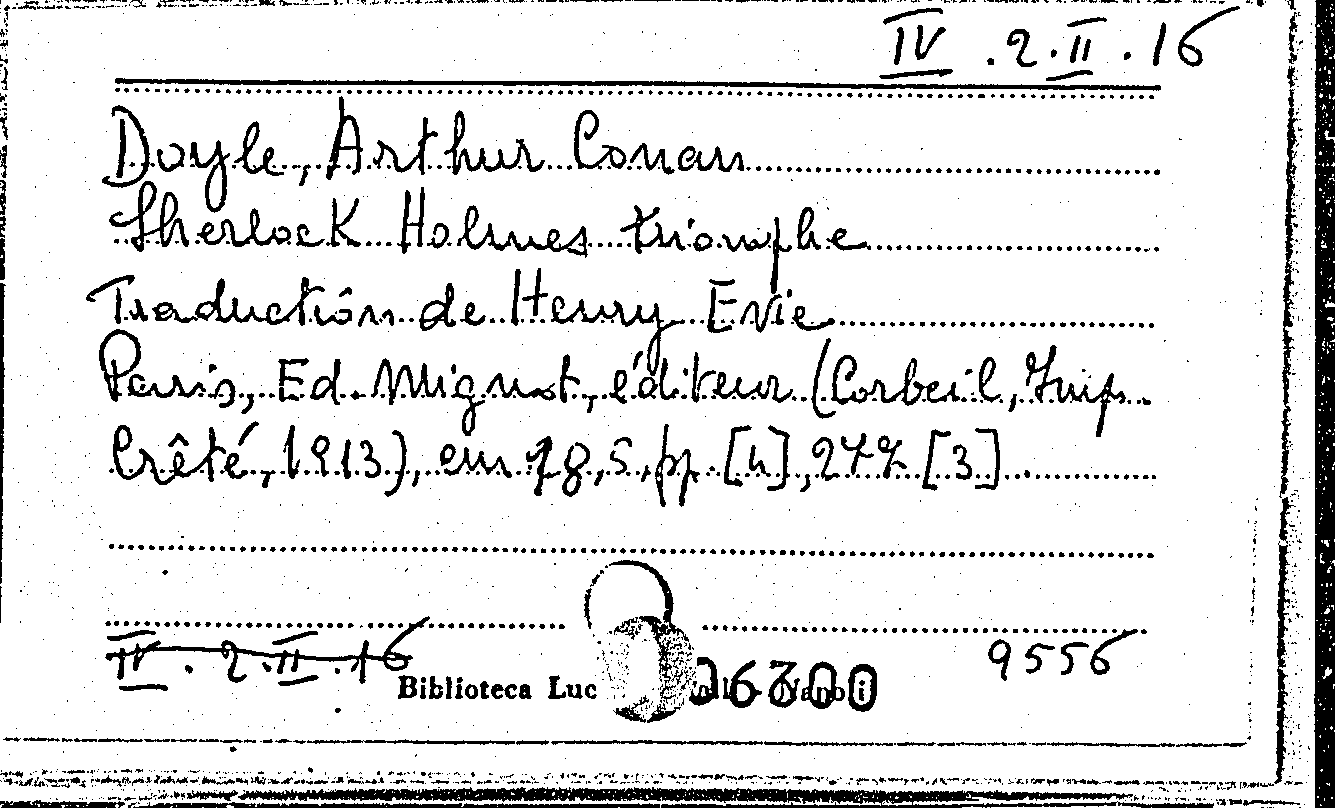 IV . 2 . II . 16
Doyle, Arthur Conan
Sherlock Holmes triomphe
Traduction de Henry Evie
Paris, Ed. Mignot, éditeur (Corbeil, Imp.
Crêté, 1913), em 18,5, pp. [4], 277 [3]
IV . 2 . II . 16
Biblioteca Luc
06300
9556